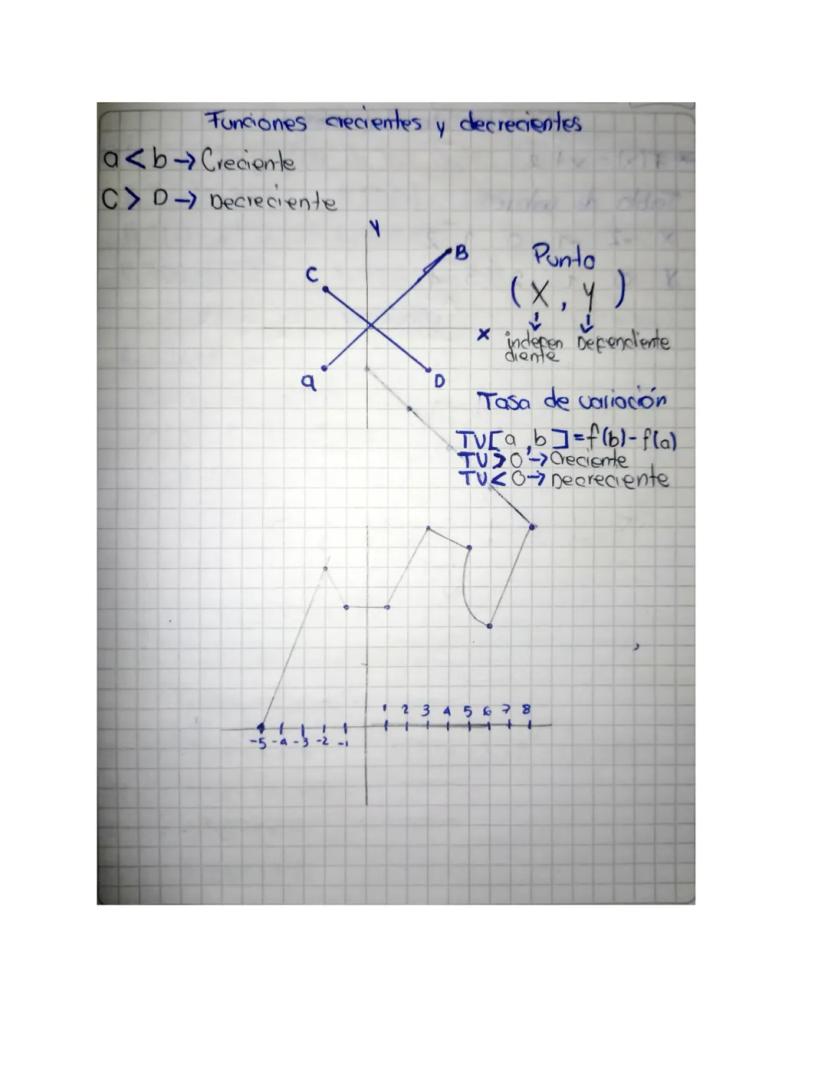 Funciones crecientes y decrecientes
a < b → Creciente
C > D → Decreciente
Y
B
C
Punto
( X , Y )
x
indepen Dependiente
diente
a
D
Tasa de variación
TV[a , b ] = f(b) - f(a)
TV > 0 → Creciente
TV < 0 → Decreciente
1 2 3 4 5 6 7 8
-5 -4 -3 -2 -1